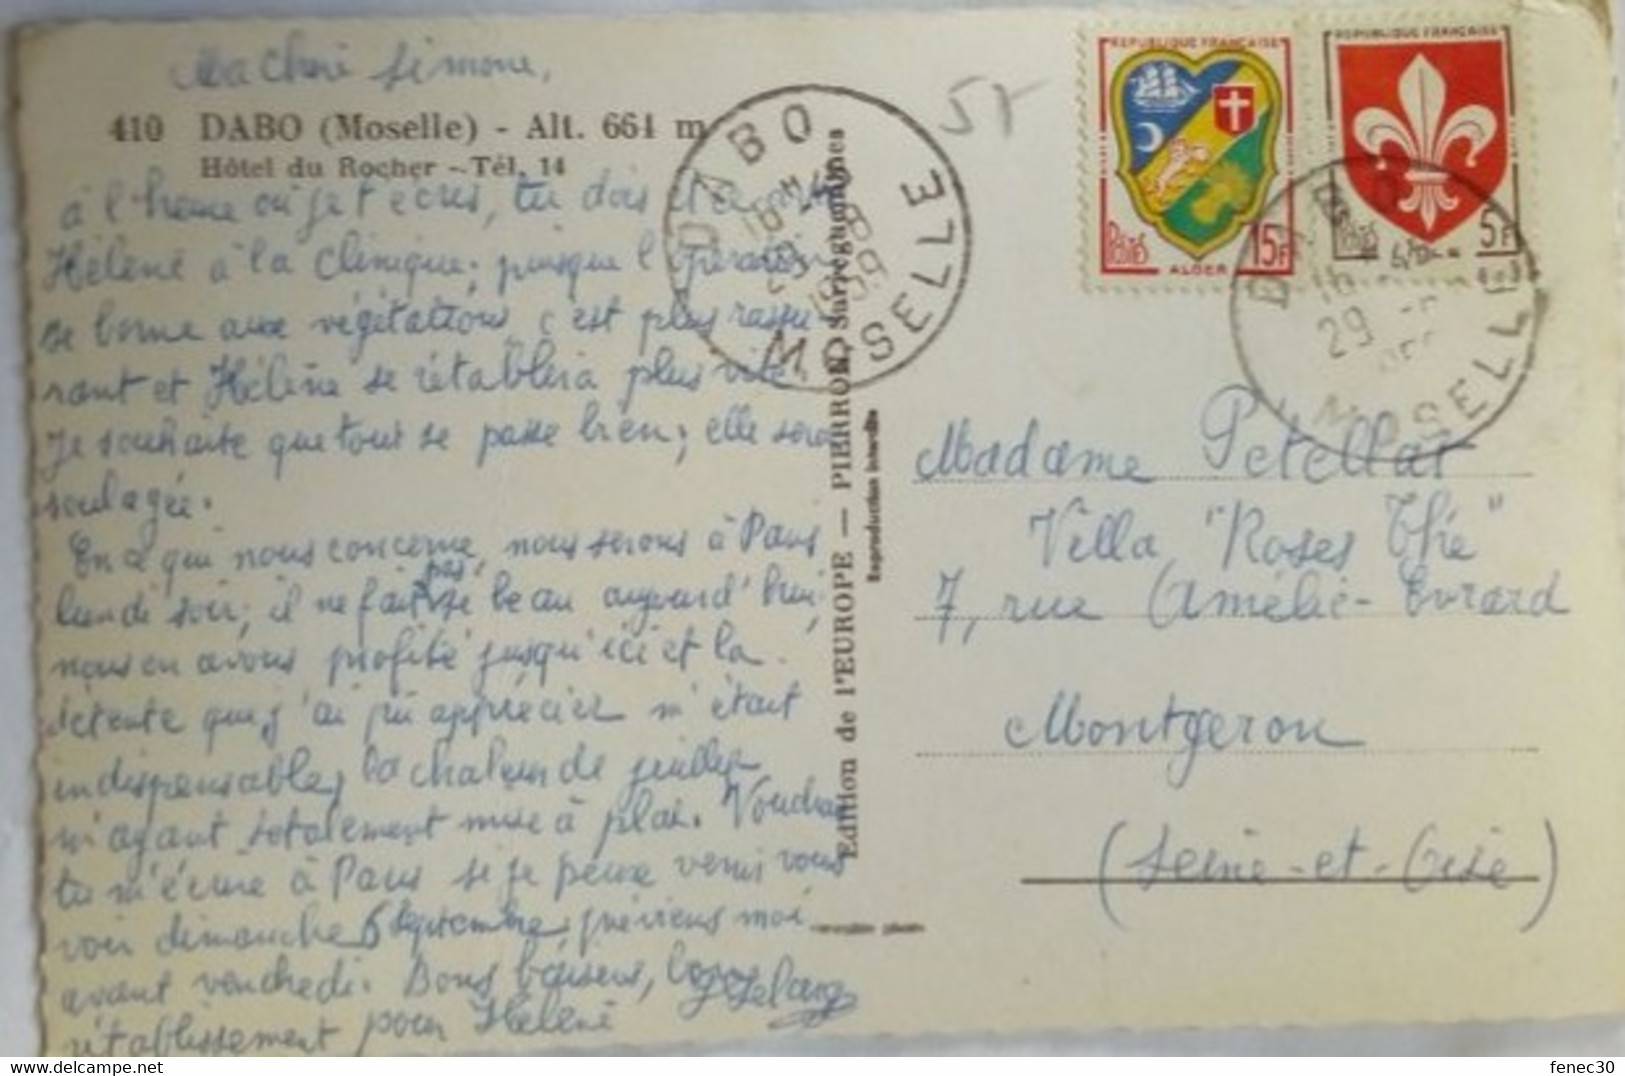 Ma chère Simone,
410 DABO (Moselle) - Alt. 661 m
Hôtel du Rocher - Tél. 14
à l'heure où je t'écris, tu dois être
Hélène à la clinique; puisque l'opération
se borne aux végétations, c'est plus rassu
rant et Hélène se rétablira plus vite.
Je souhaite que tout se passe bien; elle sera
soulagée.
En ce qui nous concerne, nous serons à Paris
lundi soir; il ne fait pas beau aujourd'hui,
nous en avons profité jusqu'ici et la
détente que j'ai pu apprécier m'était
indispensable, la chaleur de juillet
m'ayant totalement mise à plat. Voudrais
tu m'écrire à Paris si je peux venir vous
voir dimanche 6 Septembre; préviens moi
avant vendredi. Bons baisers, bon
rétablissement pour Hélène
Edition de l'EUROPE — PIERRON, Sarreguemines
Reproduction interdite
DABO
16 H 45
29 - 8
1959
MOSELLE
51
REPUBLIQUE FRANÇAISE
POSTES
15F
ALGER
REPUBLIQUE FRANÇAISE
POSTES
5F
DABO
16
29
MOSELLE
Madame Petellat
Villa "Roses Thé"
7, rue Amélie-Evrard
Montgeron
(Seine-et-Oise)
fenec30